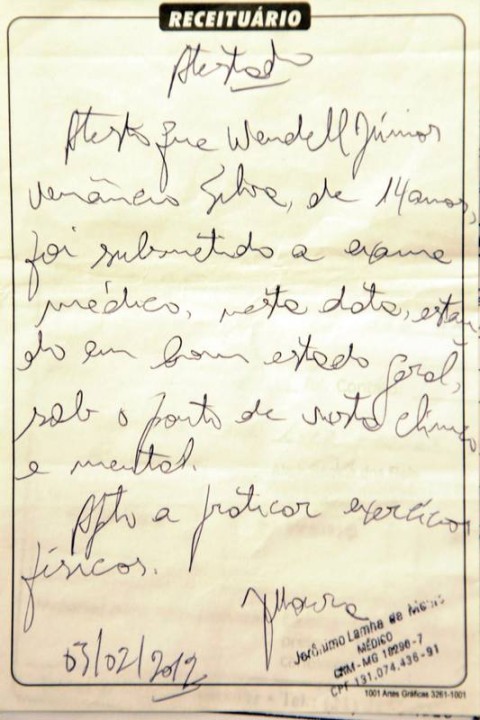 RECEITUÁRIO
Atestado
Atesto que Wendell Júnior
Venâncio Silva, de 14 anos,
foi submetido a exame
médico, nesta data, estan
do em bom estado geral,
sob o ponto de vista clínico
e mental.
Apto a praticar exercícios
físicos.
03/02/2012
Jerônimo Lamha de
MÉDICO
CRM-MG 18296-7
CPF 191.074.436-91
1001 Artes Gráficas 3261-1001